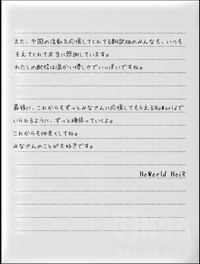 また、中国の活動を応援してくれてる翻訳組のみんなも、いつも
支えてくれて本当に感謝しています。
わたしの配信は温かい優しさでいっぱいですね。
最後に、これからもずっとみなさんに応援してもらえるNoWorldで
いられるように、ずっと頑張っていくよ。
これからも仲良くしてね。
みなさんのことが大好きです。
NoWorld NoiR